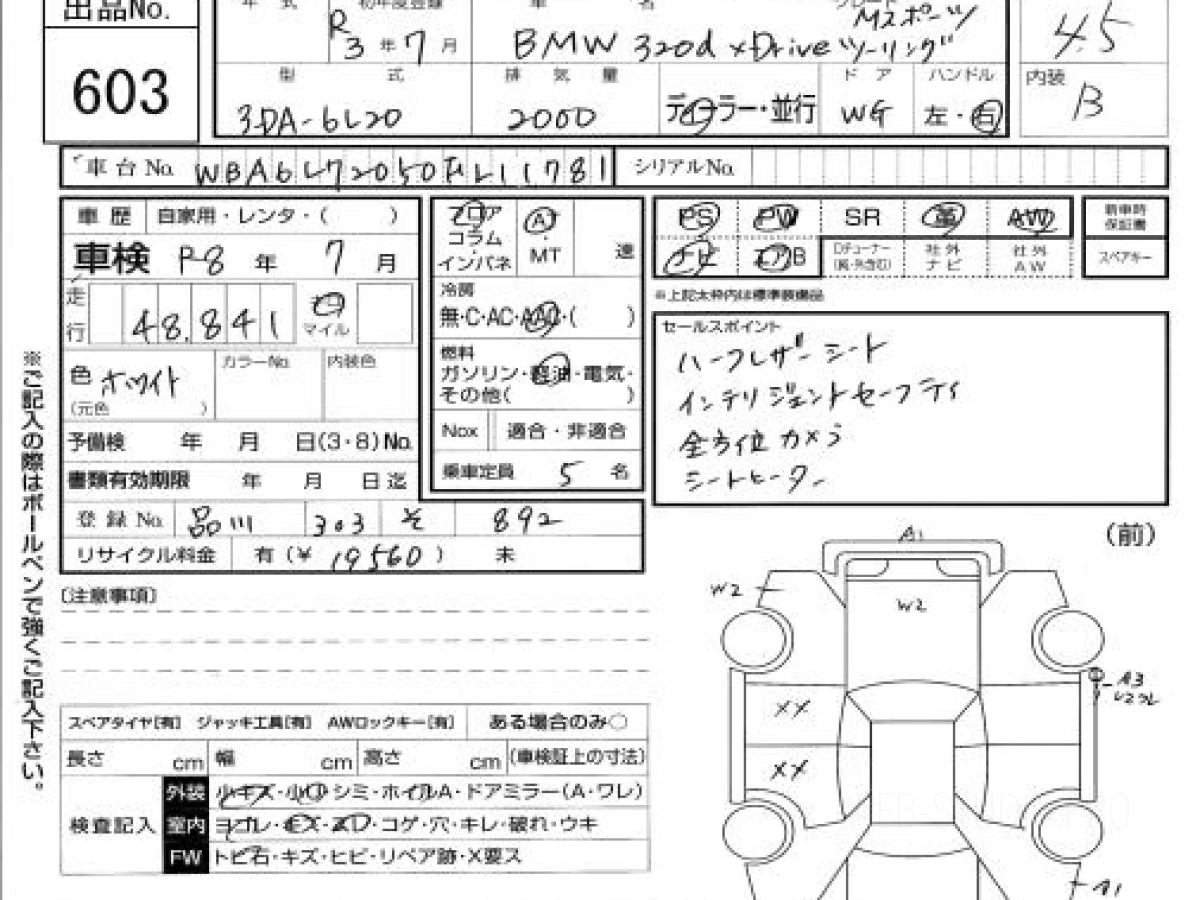 出品No.
年 式
初年度登録
車 名
グレード
603
R3年7月
BMW 320d xDrive ツーリング
Mスポーツ
4.5
型 式
排 気 量
ドア
ハンドル
内装
3DA-6L20
2000
ディーラー・並行
WG
左・右
B
車台No.
シリアルNo.
車歴 自家用・レンタ・( )
フロア
コラム
インパネ
AT
・
MT
速
PS PW SR 革 AW
新車時
保証書
車検 R8年 7月
ナビ エアB
Dチューナー
社外
ナビ
社外
AW
スペアキー
※上記太枠内は標準装備品
走行 48,841
マイル
冷房
無・C・AC・AAC・( )
セールスポイント
ハーフレザーシート
インテリジェントセーフティ
全方位カメラ
シートヒーター
色 ホワイト
(元色 )
カラーNo.
内装色
燃料
ガソリン・軽油・電気・
その他( )
予備検 年 月 日(3・8)No.
Nox 適合・非適合
書類有効期限 年 月 日迄
乗車定員 5 名
登録No. 品川 303 そ 892
リサイクル料金 有(¥ 19560 ) 未
(前)
〔注意事項〕
※ご記入の際はボールペンで強くご記入下さい。
A1
W2
W2
A3
XX
XX
A1
スペアタイヤ[有] ジャッキ工具[有] AWロックキー[有] ある場合のみ○
長さ cm 幅 cm 高さ cm (車検証上の寸法)
検査記入
外装 小キズ・小凹・シミ・ホイルA・ドアミラー(A・ワレ)
室内 ヨゴレ・キズ・スレ・コゲ・穴・キレ・破れ・ウキ
FW トビ石・キズ・ヒビ・リペア跡・X要ス